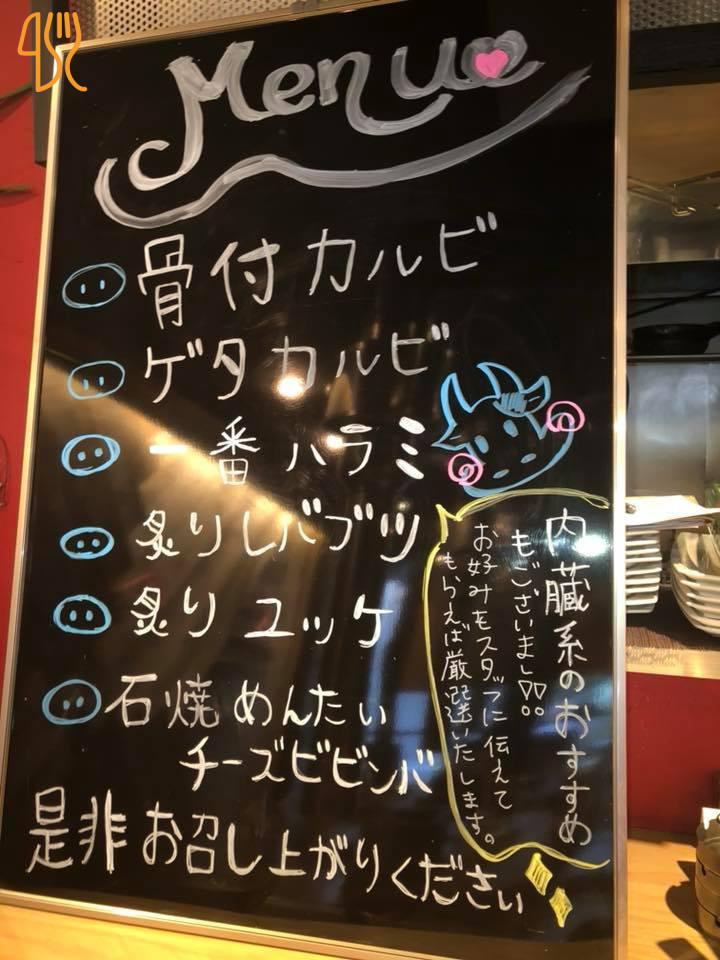 Menu
骨付カルビ
ゲタカルビ
一番ハラミ
炙りレバブツ
炙りユッケ
石焼めんたい
チーズビビンバ
是非お召し上がりください
内臓系のおすすめ
もございまし!!
お好みをスタッフに伝えて
もらえば厳選いたします。